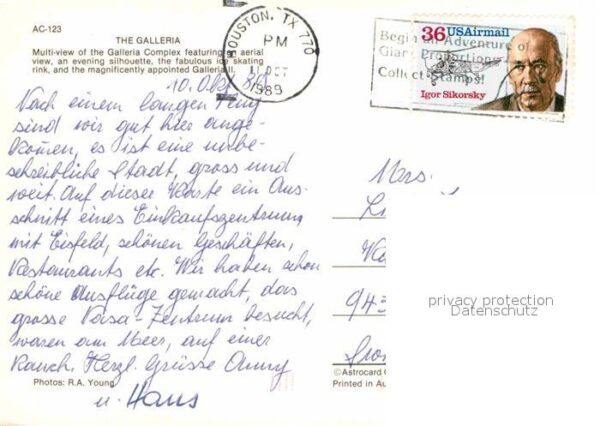 AC-123
THE GALLERIA
Multi-view of the Galleria Complex featuring an aerial
view, an evening silhouette, the fabulous ice skating
rink, and the magnificently appointed Galleria II.
HOUSTON, TX 770
PM
11 OCT
1989
Begin an Adventure of
Giant Proportions
Collect Stamps!
36 USAirmail
Igor Sikorsky
10. Okt. 89
Nach einem langen Flug
sind wir gut hier ange-
kommen, es ist eine unbe-
schreibliche Stadt, gross und
weit. Auf dieser Karte ein Aus-
schnitt eines Einkaufszentrum
mit Eisfeld, schönen Geschäften,
Restaurants etc. Wir haben schon
schöne Ausflüge gemacht, das
grosse Nasa-Zentrum besucht,
waren am Meer, auf einer
Ranch. Herzl. Grüsse Anny
u. Hans
Mrs.
943
privacy protection
Datenschutz
Photos: R.A. Young
©Astrocard
Printed in Au